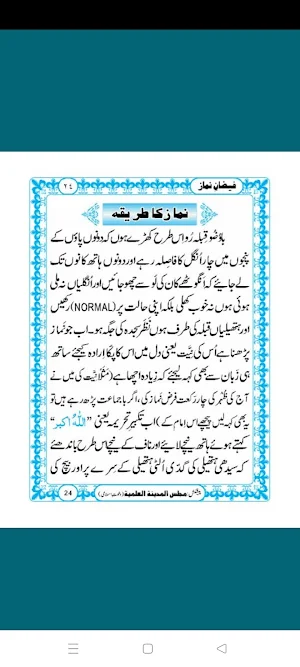 فیضانِ نماز
٢٤
نماز کا طریقہ
باوُضو قِبلہ رُو اس طرح کھڑے ہوں کہ دونوں پاؤں کے
پنجوں میں چار اُنگل کا فاصلہ رہے اور دونوں ہاتھ کانوں تک
لے جائیے کہ انگوٹھے کان کی لَو سے چھو جائیں اور اُنگلیاں نہ ملی
ہوئی ہوں نہ خوب کھلی بلکہ اپنی حالت پر (NORMAL) رکھیں
اور ہتھیلیاں قبلہ کی طرف ہوں نظر سجدہ کی جگہ ہو۔ اب جو نماز
پڑھنا ہے اُس کی نیّت یعنی دل میں اس کا پکّا ارادہ کیجئے ساتھ
ہی زبان سے بھی کہہ لیجئے کہ زیادہ اچھا ہے (مَثَلًا نیّت کی میں نے
آج کی ظہر کی چار رکعت فرض نماز کی، اگر با جماعت پڑھ رہے ہیں تو
یہ بھی کہہ لیں پیچھے اس امام کے) اب تکبیرِ تحریمہ یعنی ”اللّٰہُ اکبر“
کہتے ہوئے ہاتھ نیچے لائیے اور ناف کے نیچے اس طرح باندھئے
کہ سیدھی ہتھیلی کی گدّی اُلٹی ہتھیلی کے سرے پر اور بیچ کی
24
پیشکش: مجلس المدینۃ العلمیۃ (دعوتِ اسلامی)